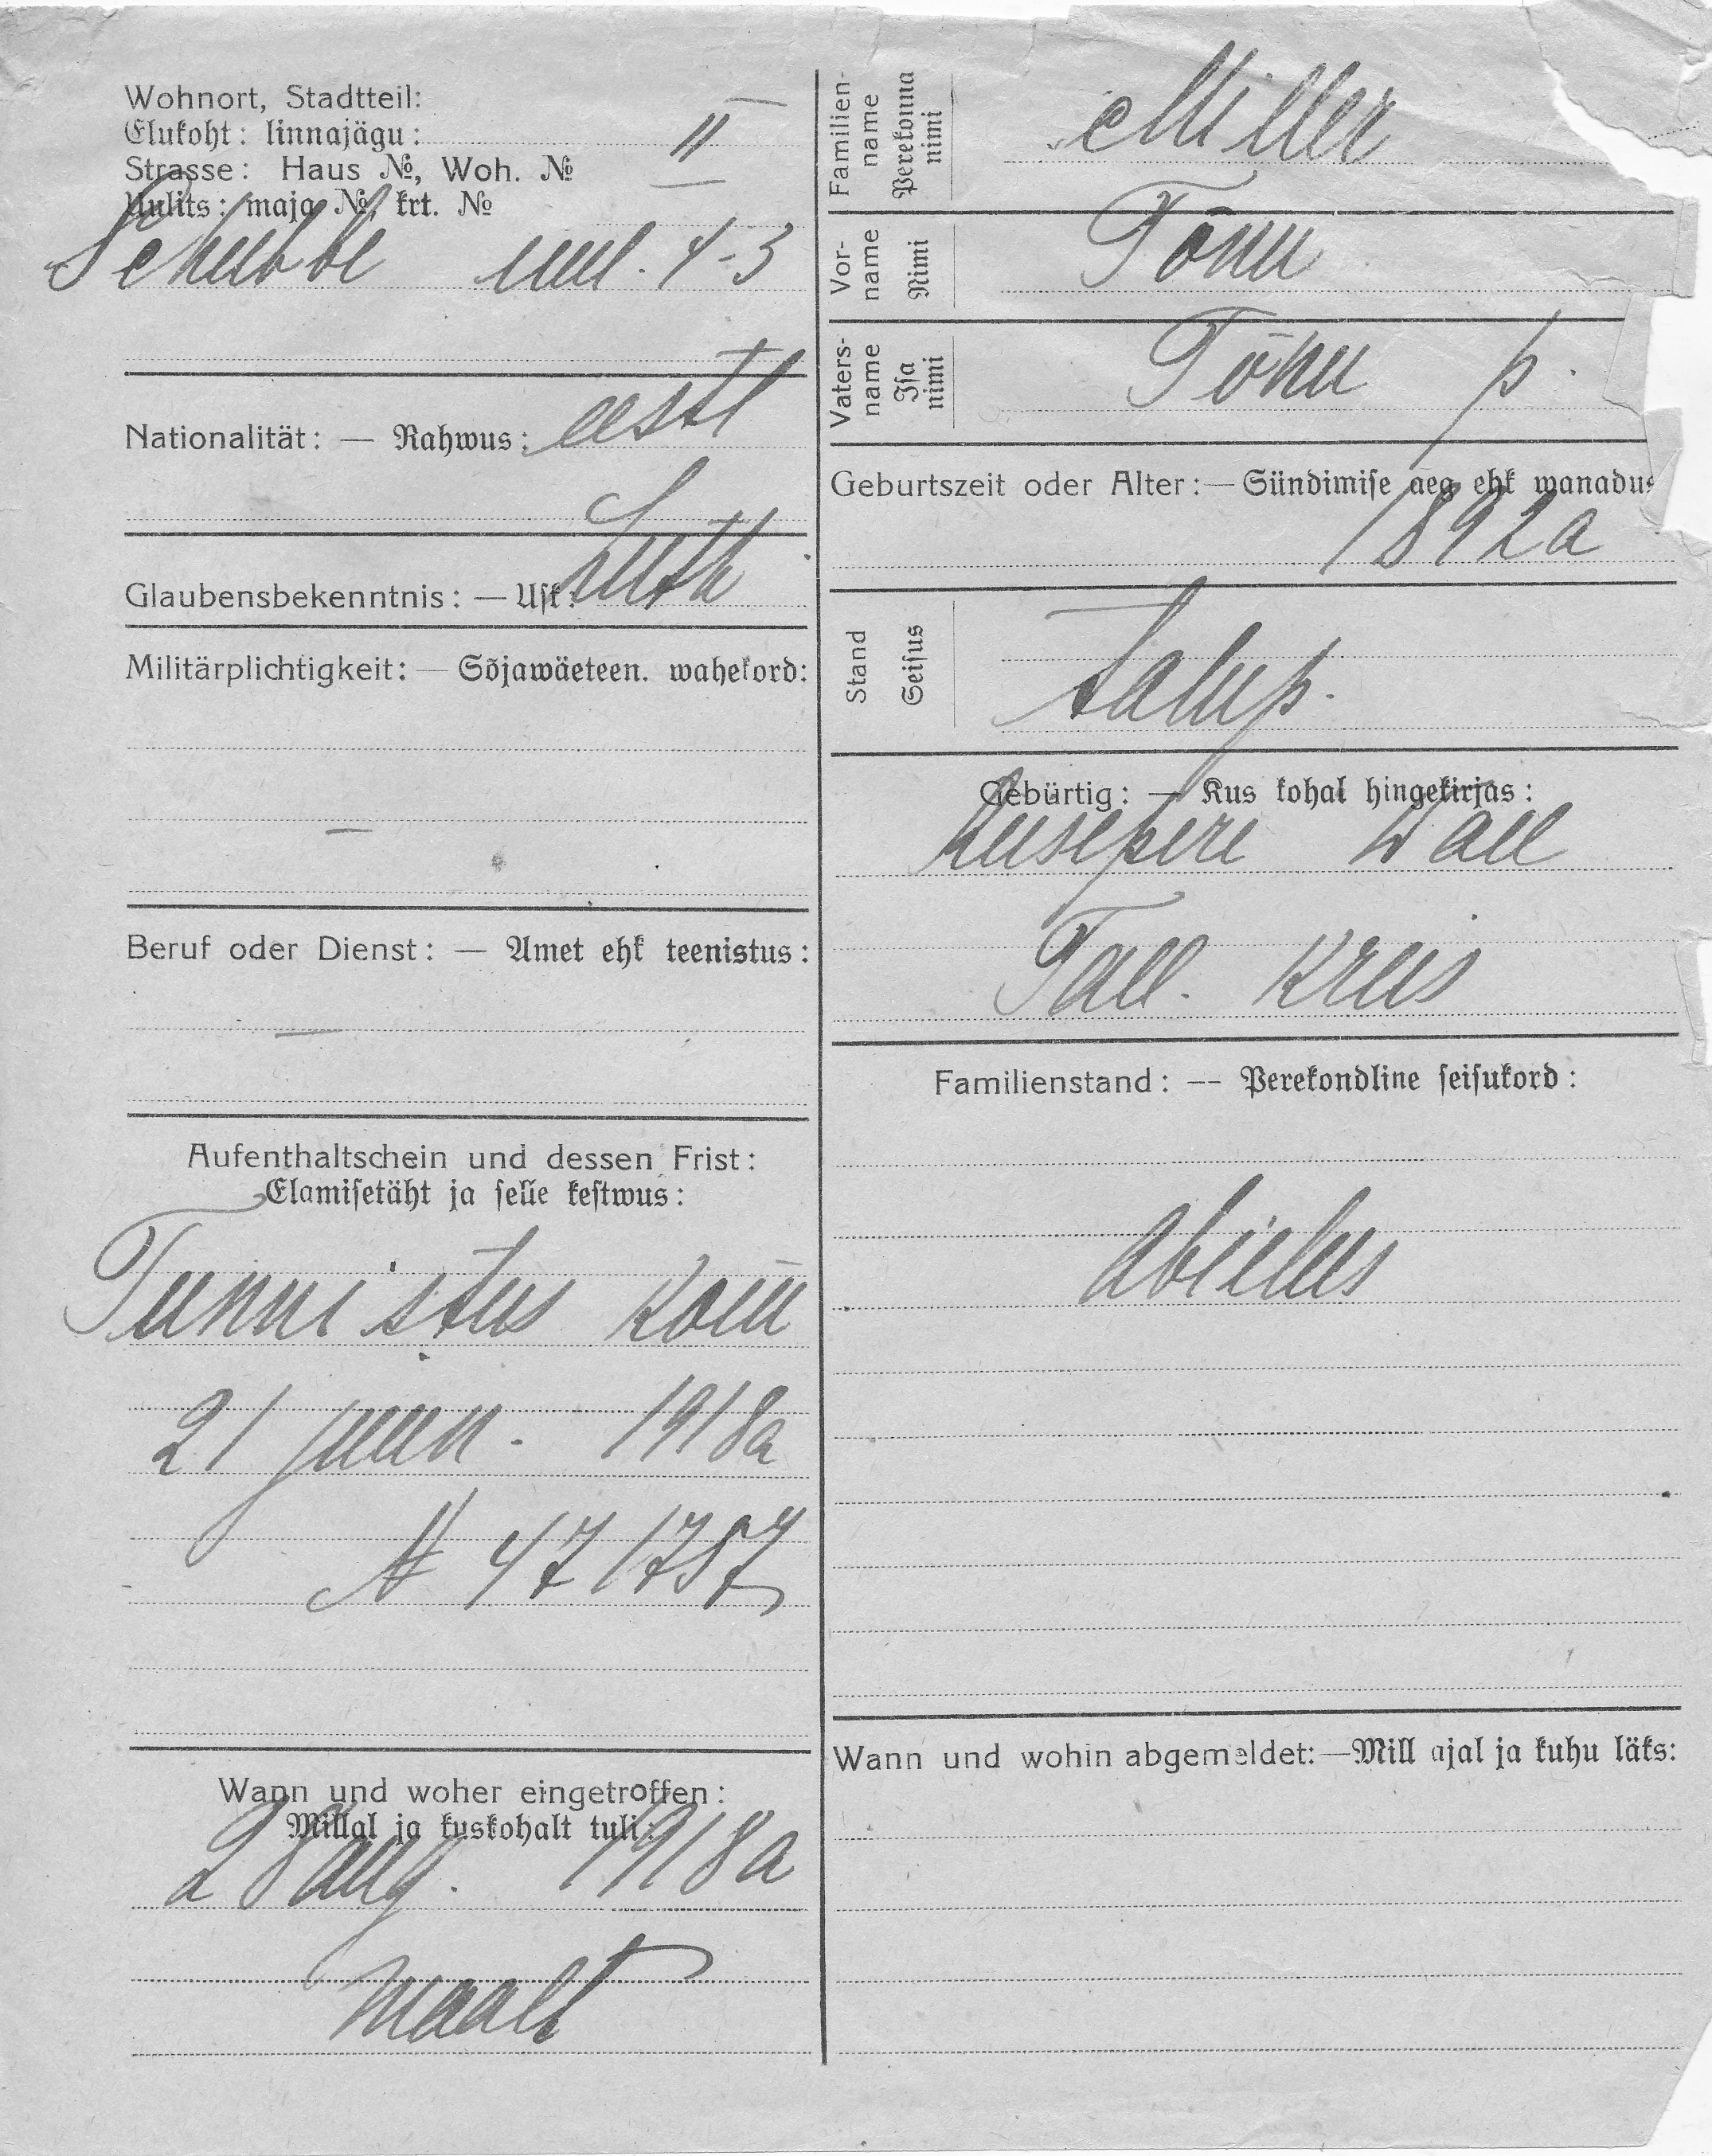 Wohnort, Stadtteil:
Elukoht: linnajägu: II
Strasse: Haus №, Woh. №
Uulits: maja №, krt. №
Schubbe uul. 4-3
Nationalität: — Rahwus: eestl
Glaubensbekenntnis: — Usk: Luth
Militärplichtigkeit: — Sõjawäeteen. wahekord:
—
Beruf oder Dienst: — Amet ehk teenistus:
—
Aufenthaltschein und dessen Frist:
Elamisetäht ja selle kestwus:
Tunnistus
21 juun. 1918a
№ 471757
Wann und woher eingetroffen:
Millal ja kuskohalt tuli:
28 aug. 1918a
Maalt
Familienname
Perekonna nimi
Miller
Vorname
Nimi
Tõnu
Vatersname
Isa nimi
Tõnu p.
Geburtszeit oder Alter: — Sündimise aeg ehk wanadus
1892a
Stand
Seisus
talup.
Gebürtig: — Kus kohal hingekirjas:
Wall
Tall. Kreis
Familienstand: -- Perekondline seisukord:
abielus
Wann und wohin abgemeldet: — Mill ajal ja kuhu läks: